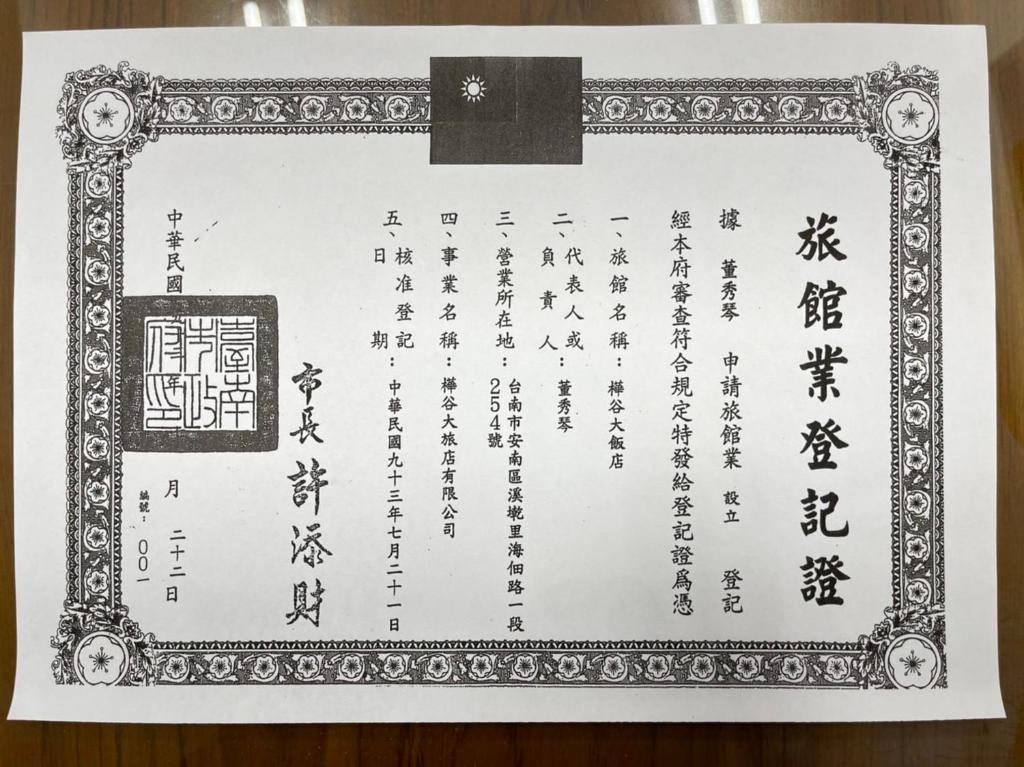 旅館業登記證
據 董秀琴 申請旅館業 設立 登記
經本府審查符合規定特發給登記證爲憑
一、旅館名稱：樺谷大飯店
二、代表人或
負責人：董秀琴
三、營業所在地：台南市安南區溪墘里海佃路一段
254號
四、事業名稱：樺谷大旅店有限公司
五、核准登記
日期：中華民國九十三年七月二十一日
市長 許添財
中華民國 年 月 二十二日
臺南市政府印
編號：00一